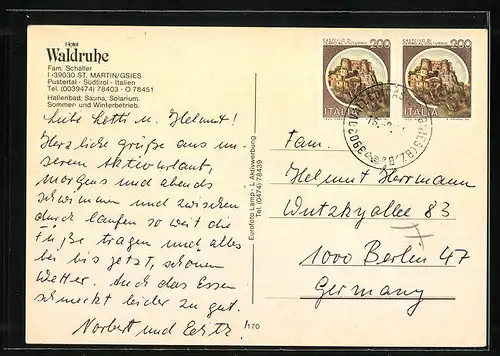 Hotel
Waldruhe
Fam. Schaller
I-39030 ST. MARTIN/GSIES
Pustertal · Südtirol · Italien
Tel. (0039474) 78403 - O 78451
Hallenbad, Sauna, Solarium.
Sommer- und Winterbetrieb.
Liebe Lotti u. Helmut!
Herzliche Grüße aus un-
serem Aktivurlaut,
morgens und abends
schwimmen und zwischen
durch laufen so weit die
Füße tragen und alles
bei bis jetzt, schönen
Wetter. Auch das Essen
schmeckt leider zu gut.
Norbert und
Eurofoto Lamp - L. Aktivwerbung
Tel. (0474) 78439
170
CASTELLO DI
CERRO AL VOLTURNO
200
ITALIA
CASTELLO DI
CERRO AL VOLTURNO
200
ITALIA
Fam.
Helmut Herrmann
Wutzkyallee 83
1000 Berlin 47
Germany